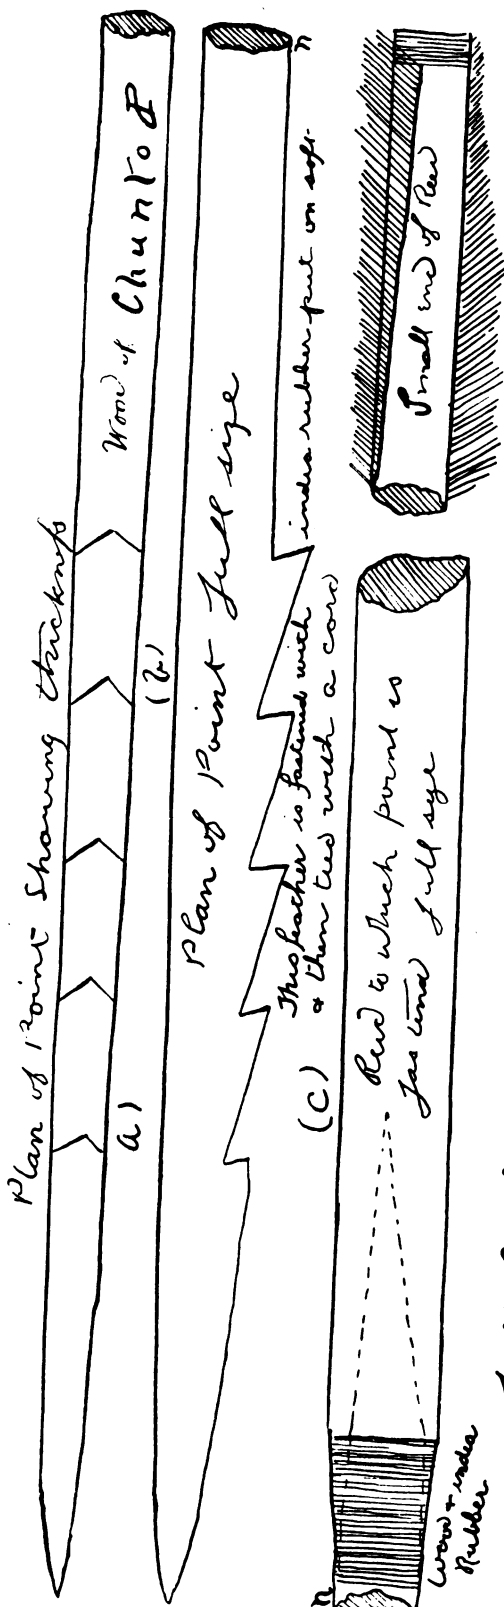 Plan of Point Showing thickness
Wood of Chunto P
a)
(b)
Plan of Point full size
n
This feather is fastened with india rubber put on soft
& then tied with a cord
(C)
Reed to which point is
fastend full sye
Small end of Reed
n
Wood + india
Rubber